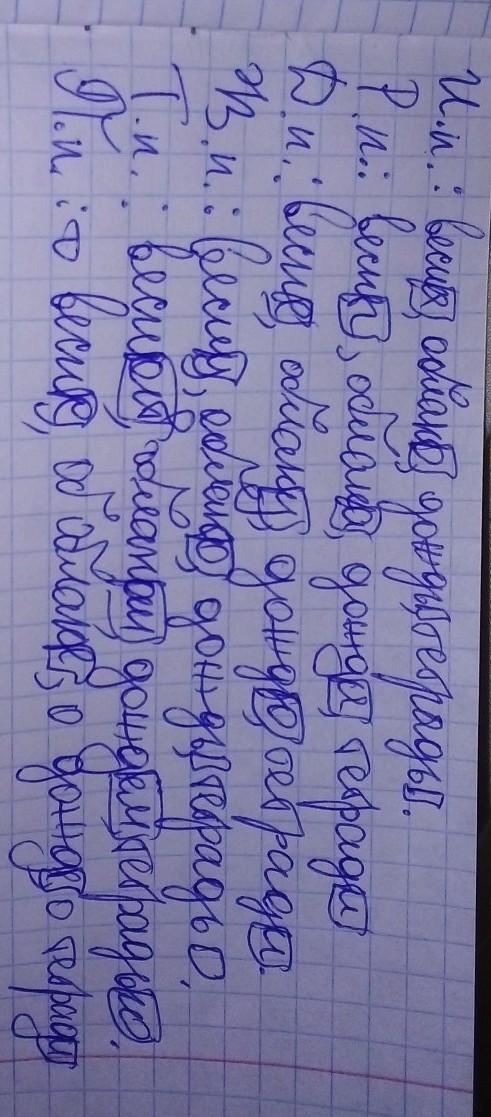 И.п.: весна, облако, дождь, тетрадь.
Р.п.: весны, облака, дождя, тетради
Д.п.: весне, облаку, дождю, тетради.
В.п.: весну, облако, дождь, тетрадь.
Т.п.: весной, облаком, дождем, тетрадью.
П.п.: о весне, об облаке, о дожде, о тетради